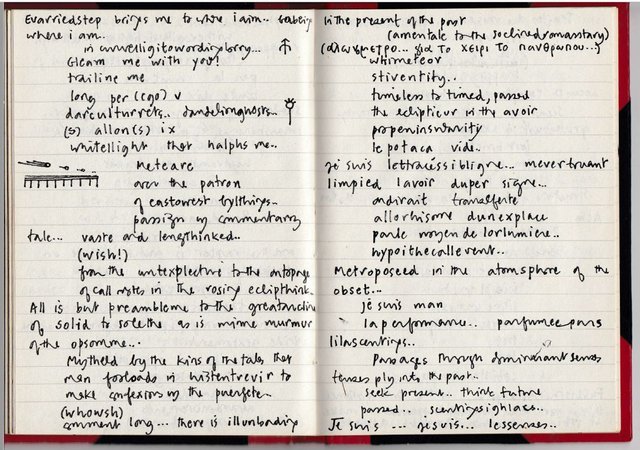 Evarriedstep brings me to where i am..
where i am..
Gleam me with you!
trailine me
long per (ego) v
darculturrets.. dandelionghosts..
(s) allon(s) ix
whitellight that halphs me..
meteare
over the patron
of eastowest bylthings..
passign my commentarry
tale... vaste and lengthinked..
(wish!)
from the untexplective to the
of call notes in the rosiry eclipthink..
All is but preambleme to the
of solid to solethe as is mime murmur
of the opsomme...
Mytheld by the kins of the tales that
men forloads in histentrevir to
make confexions my the
(whoosh)
comment long... there is illunbading
in the present of the past
(amentale to the soclinedromantary)
whimeteor
stiventity..
timeless to timed, passed
the eclipticur in the avoir
propeninsularity
le potaca vide..
je suis lettracessibligne... mevertruant
limpied lavoir duper signe...
ondirait transferte
allorhisome dunexplace
parle moyen de lorlumiere..
hypoithecallevent..
Metroposeed in the atomsphere of the
obset...
je suis man
la performance.. parfumee pans
lilascentings..
Passages through dominanant senses
tenses ply into the past..
seek present.. think future
passed.. scentingsighlass..
Je suis ... jesuis... lessenses..